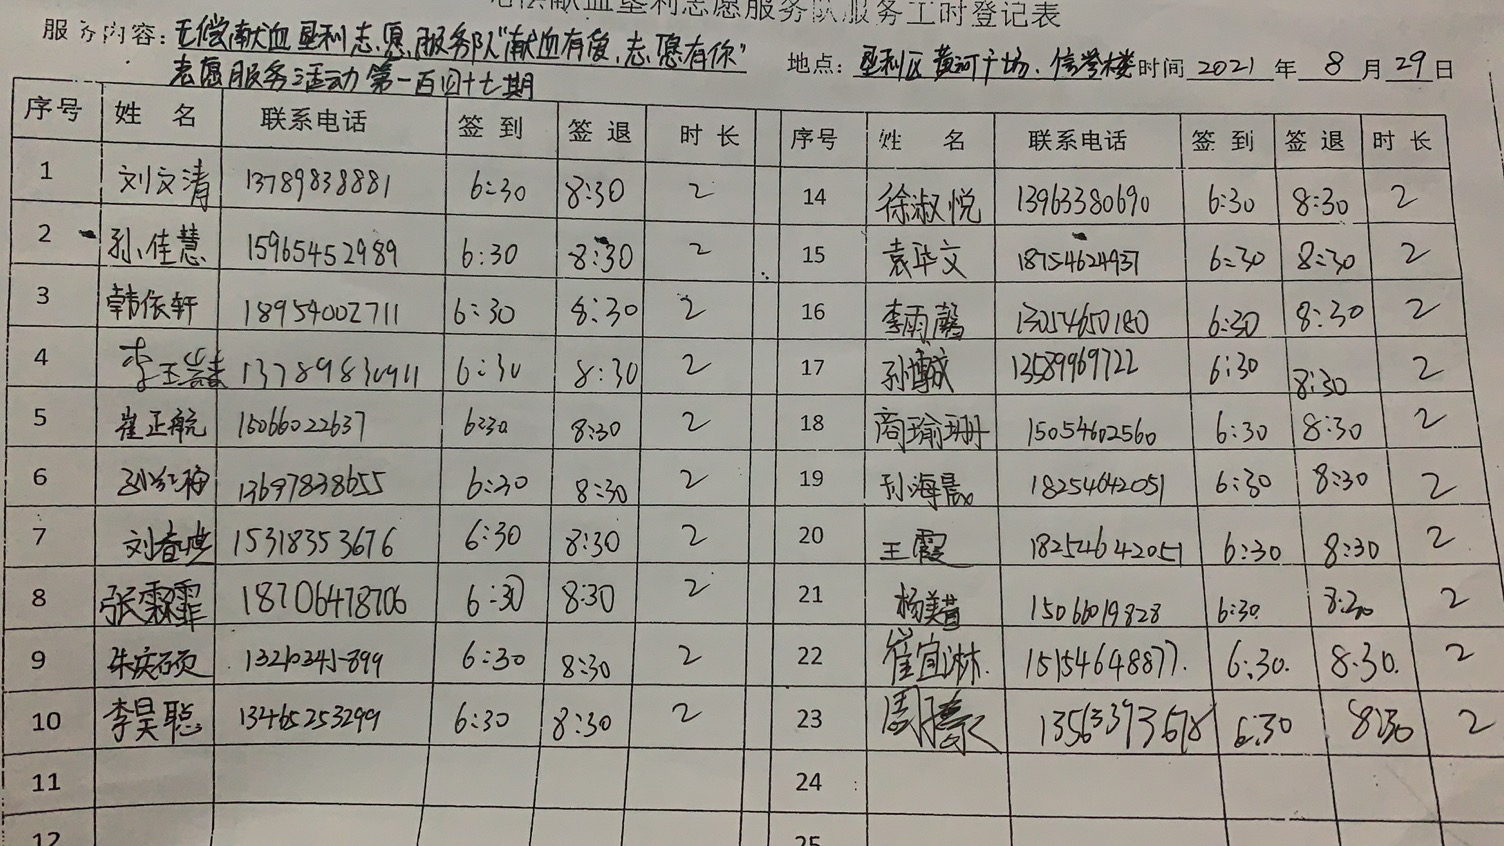 无偿献血垦利志愿服务队服务工时登记表
服务内容：无偿献血垦利志愿服务队“献血有爱，志愿有你”
志愿服务活动第一百四十七期
地点：垦利区黄河广场、信誉楼 时间 2021 年 8 月 29 日
序号 姓 名 联系电话 签 到 签 退 时 长 序号 姓 名 联系电话 签 到 签 退 时 长
1 刘文清 13789838881 6:30 8:30 2 14 徐淑悦 13963380690 6:30 8:30 2
2 孙佳慧 15965452989 6:30 8:30 2 15 袁华文 18754624937 6:30 8:30 2
3 韩依轩 18954002711 6:30 8:30 2 16 李雨馨 13054650180 6:30 8:30 2
4 李玉 13789830911 6:30 8:30 2 17 孙博成 13589969722 6:30 8:30 2
5 崔正航 15066022637 6:30 8:30 2 18 商瑜珊 15054602560 6:30 8:30 2
6 孙红梅 13697838655 6:30 8:30 2 19 孙海晨 18254642051 6:30 8:30 2
7 刘春 15318353676 6:30 8:30 2 20 王霞 18254642051 6:30 8:30 2
8 张霖霏 18706478706 6:30 8:30 2 21 杨美萱 15066019828 6:30 8:30 2
9 朱庆硕 6:30 8:30 2 22 崔宜淋. 15154648877. 6:30. 8:30. 2
10 李昊聪 13465253299 6:30 8:30 2 23 周 13563373678 6:30 8:30 2
11 24
12 25